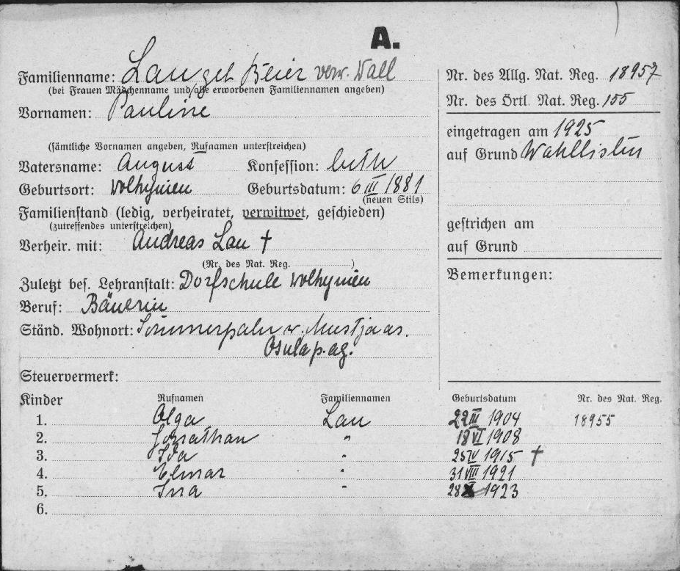 A.
Familienname: Lau geb Beier verw. Wall
(bei Frauen Mädchenname und alle erworbenen Familiennamen angeben)
Vornamen: Pauline
(sämtliche Vornamen angeben, Rufnamen unterstreichen)
Vatersname: August Konfession: luth
Geburtsort: Wolhynien Geburtsdatum: 6 III 1881
(neuen Stils)
Familienstand (ledig, verheiratet, verwitwet, geschieden)
(zutreffendes unterstreichen)
Verheir. mit: Andreas Lau †
(Nr. des Nat. Reg. )
Zuletzt bes. Lehranstalt: Dorfschule Wolhynien
Beruf: Bäuerin
Ständ. Wohnort: Sommerpalu v. Mustjaas.
Osula p. ag.
Steuervermerk:
Nr. des Allg. Nat. Reg. 18957
Nr. des Örtl. Nat. Reg. 155
eingetragen am 1925
auf Grund Wahllisten
gestrichen am
auf Grund
Bemerkungen:
Kinder Rufnamen Familiennamen Geburtsdatum Nr. des Nat. Reg.
1. Olga Lau 22 III 1904 18955
2. Jonathan " 18 VI 1908
3. Ida " 25 IV 1915 †
4. Elmar " 31 VIII 1921
5. Irra " 28 X 1923
6.